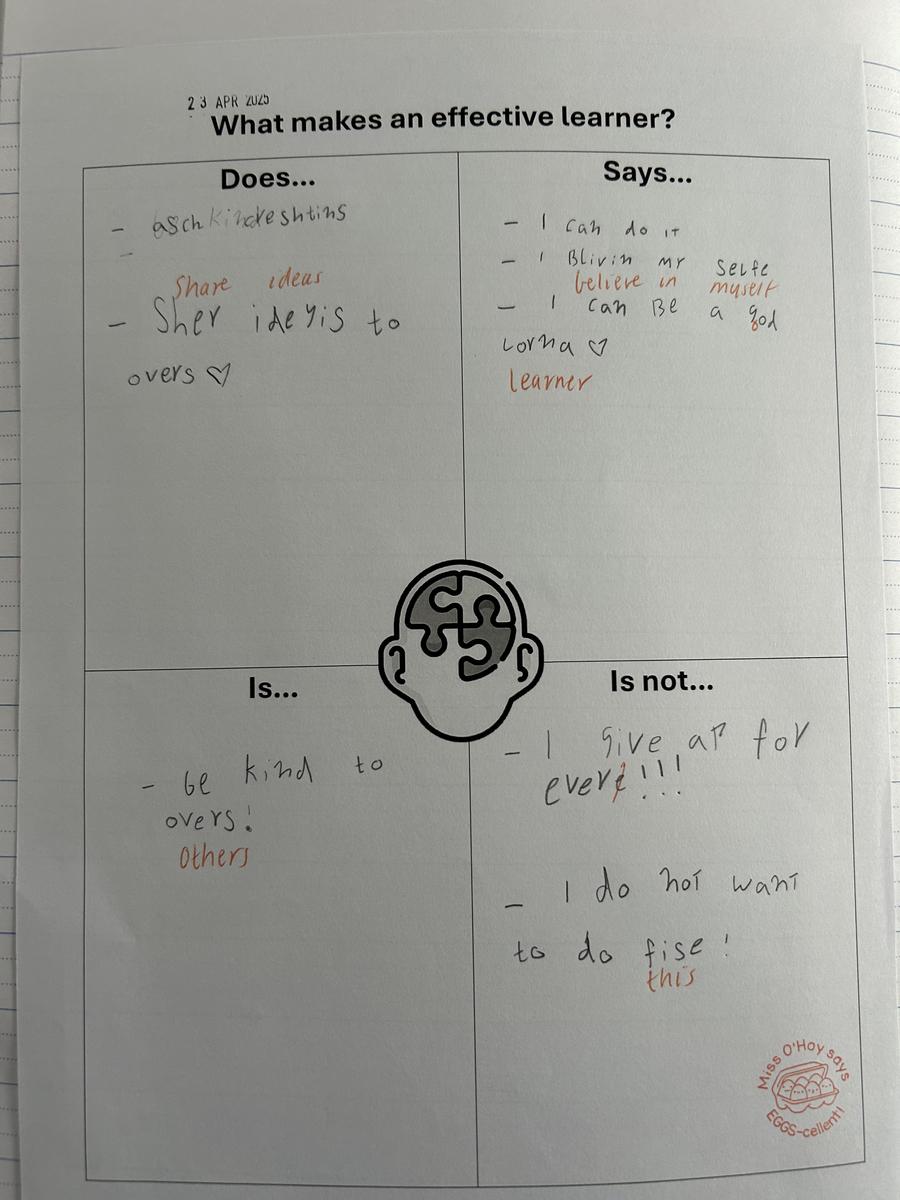 23 APR 2025
What makes an effective learner?
Does...
- asch kind eshtins
-
share ideas
- Sher ideyis to
overs ♡
Says...
- I can do it
- I Blivin my selfe
believe in myself
- I can Be a god
lorna ♡
learner
Is...
- be kind to
overs!
others
Is not...
- I give ap for
ever!!!
- I do not want
to do fise!
this
Miss O'Hoy says
EGGS-cellent!